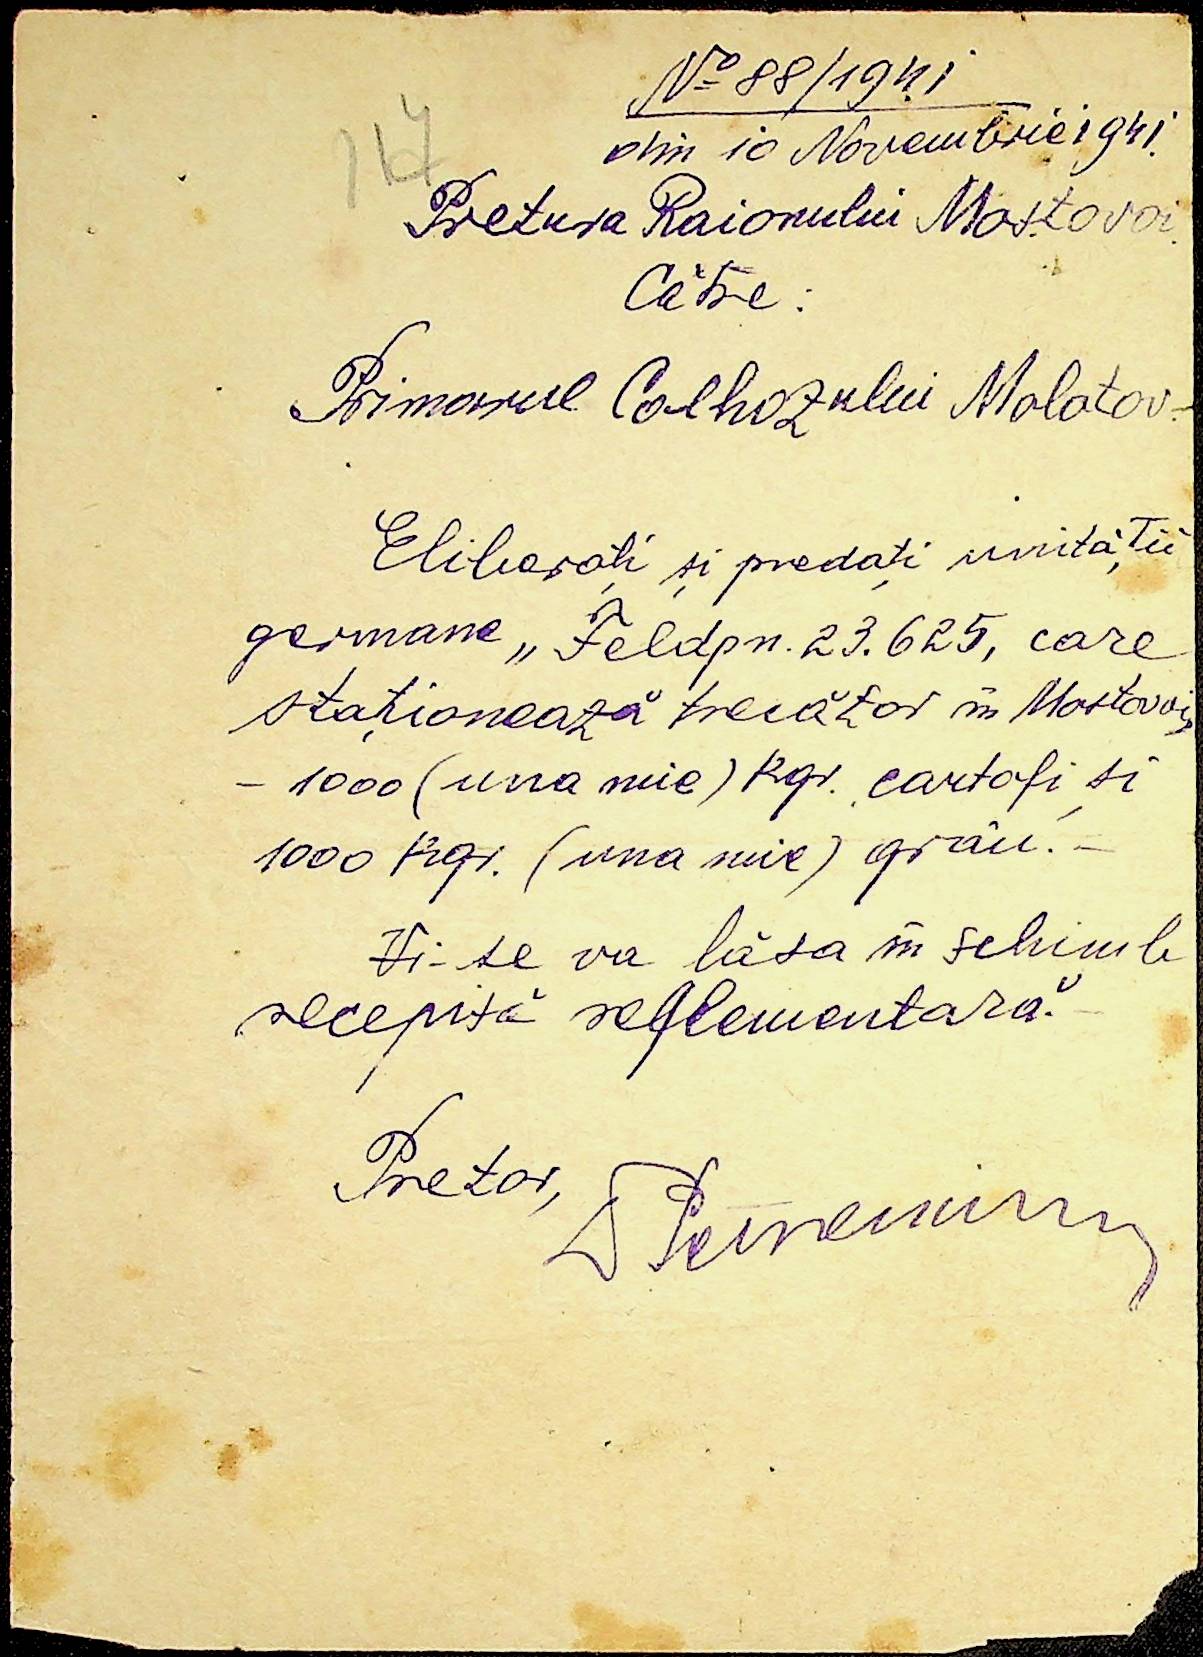 Nº 88/1941
din 10 Novembrie 1941.
117
Pretura Raionului Mostovoi.
Către:
Primarul Colhozului Molotov.-
Eliberați și predați unității
germane „Feldpn. 23.625, care
staționează trecător în Mostovoi,
- 1000 (una mie) kgr. cartofi și
1000 kgr. (una mie) grâu.-
Vi-se va lăsa în schimb
recepisă reglementară.-
Pretor,